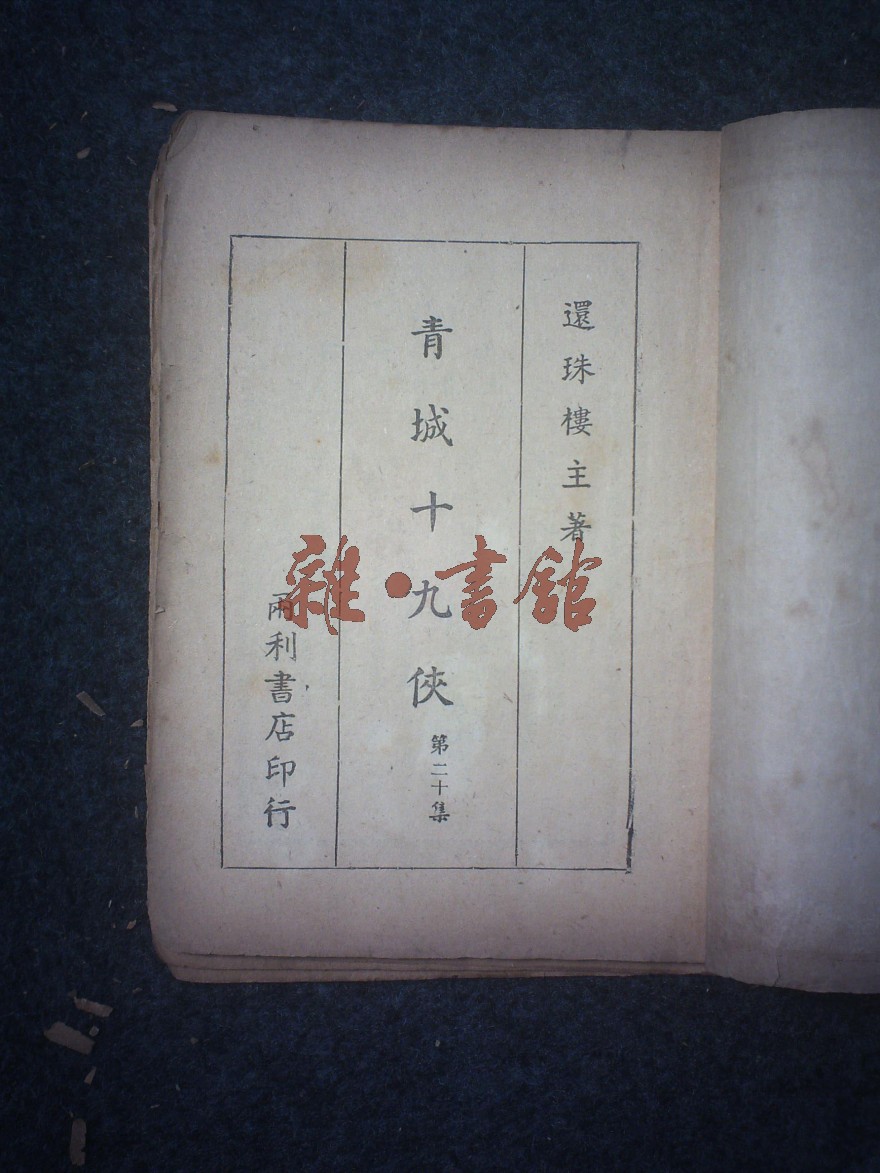 還珠樓主著
青城十九俠
第二十集
兩利書店印行
雜·書館